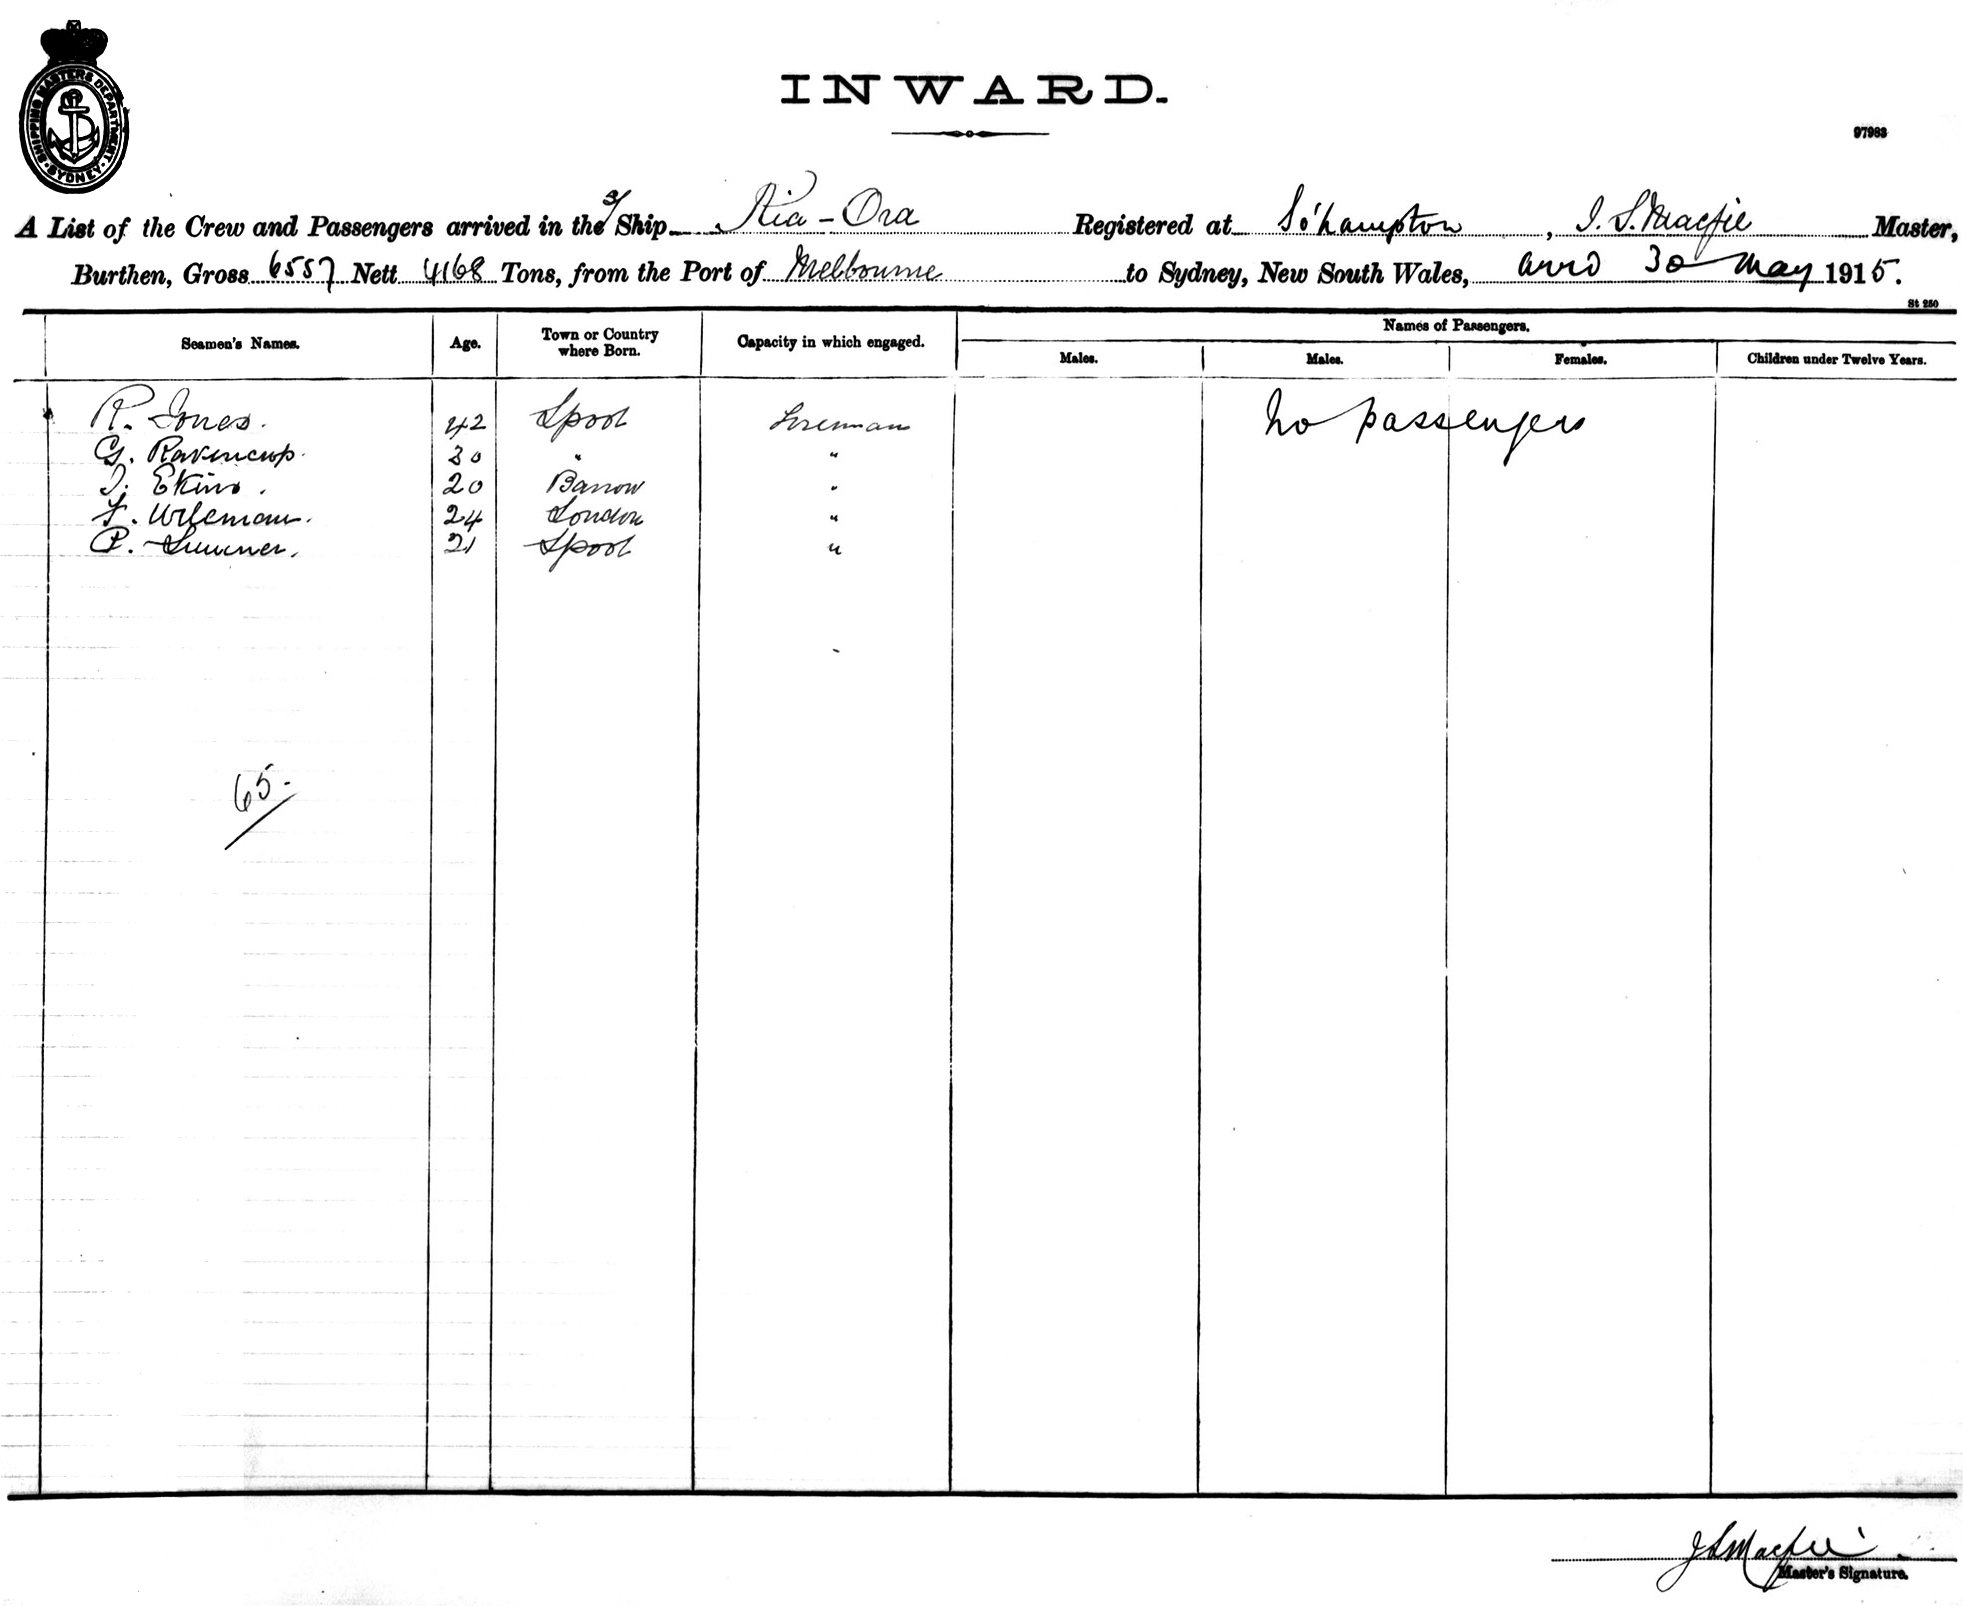 SHIPPING MASTERS DEPARTMENT. SYDNEY
INWARD.
97983
A List of the Crew and Passengers arrived in the S/ Ship Kia-Ora Registered at So'hampton, J. S. Macfie Master,
Burthen, Gross 6557 Nett 4168 Tons, from the Port of Melbourne to Sydney, New South Wales, arrd 30 May 1915.
St 250
Seamen's Names. Age. Town or Country where Born. Capacity in which engaged. Names of Passengers.
Males. Males. Females. Children under Twelve Years.
R. Jones. 42 Lpool Fireman No passengers
G. 30 " "
J. Ekins. 20 Barrow "
F. Wileman. 24 London "
P. Sumner. 21 Lpool "
65.
J S Macfie
Master's Signature.